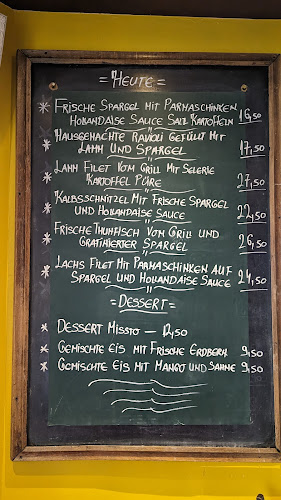 = HEUTE =
* FRISCHE SPARGEL MIT PARMASCHINKEN
HOLLANDAISE SAUCE SALZ KARTOFFELN 16,50
* HAUSGEMACHTE RAVIOLI GEFÜLLT MIT
LAMM UND SPARGEL 17,50
* LAMM FILET VOM GRILL MIT SELERIE
KARTOFFEL PÜRE 27,50
* KALBSSCHNITZEL MIT FRISCHE SPARGEL
UND HOLLANDAISE SAUCE 22,50
* FRISCHE THUNFISCH VOM GRILL UND
GRATINIERTER SPARGEL 26,50
* LACHS FILET MIT PARMASCHINKEN AUF
SPARGEL UND HOLLANDAISE SAUCE 24,50
= DESSERT =
* DESSERT MISSTO — 12,50
* GEMISCHTE EIS MIT FRISCHE ERDBERN 9,50
* GEMISCHTE EIS MIT MANGO UND SAHNE 9,50